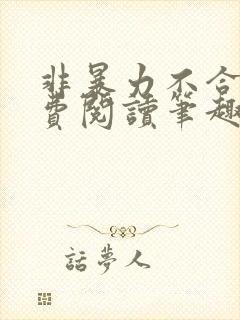 非暴力不合
費閱讀筆趣
話夢人